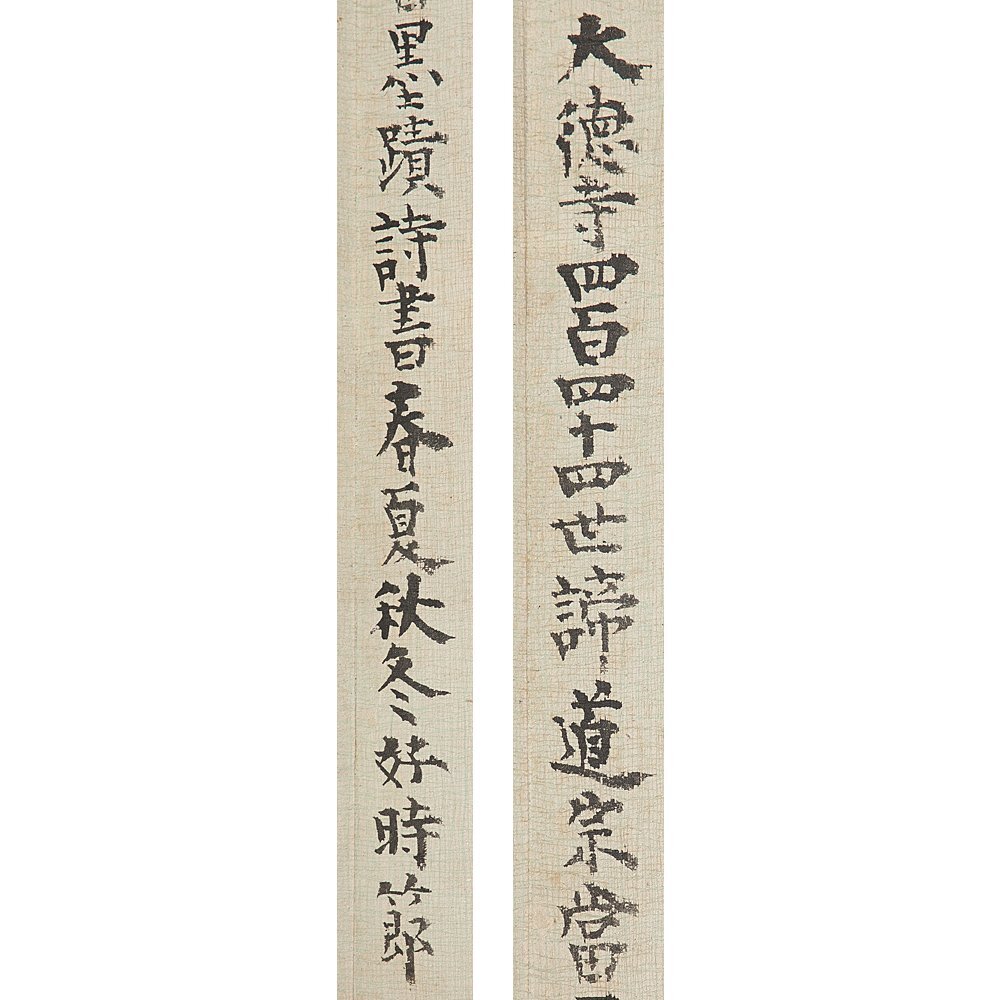 大德寺四百四十四世諦道宗當
墨蹟詩書春夏秋冬好時節